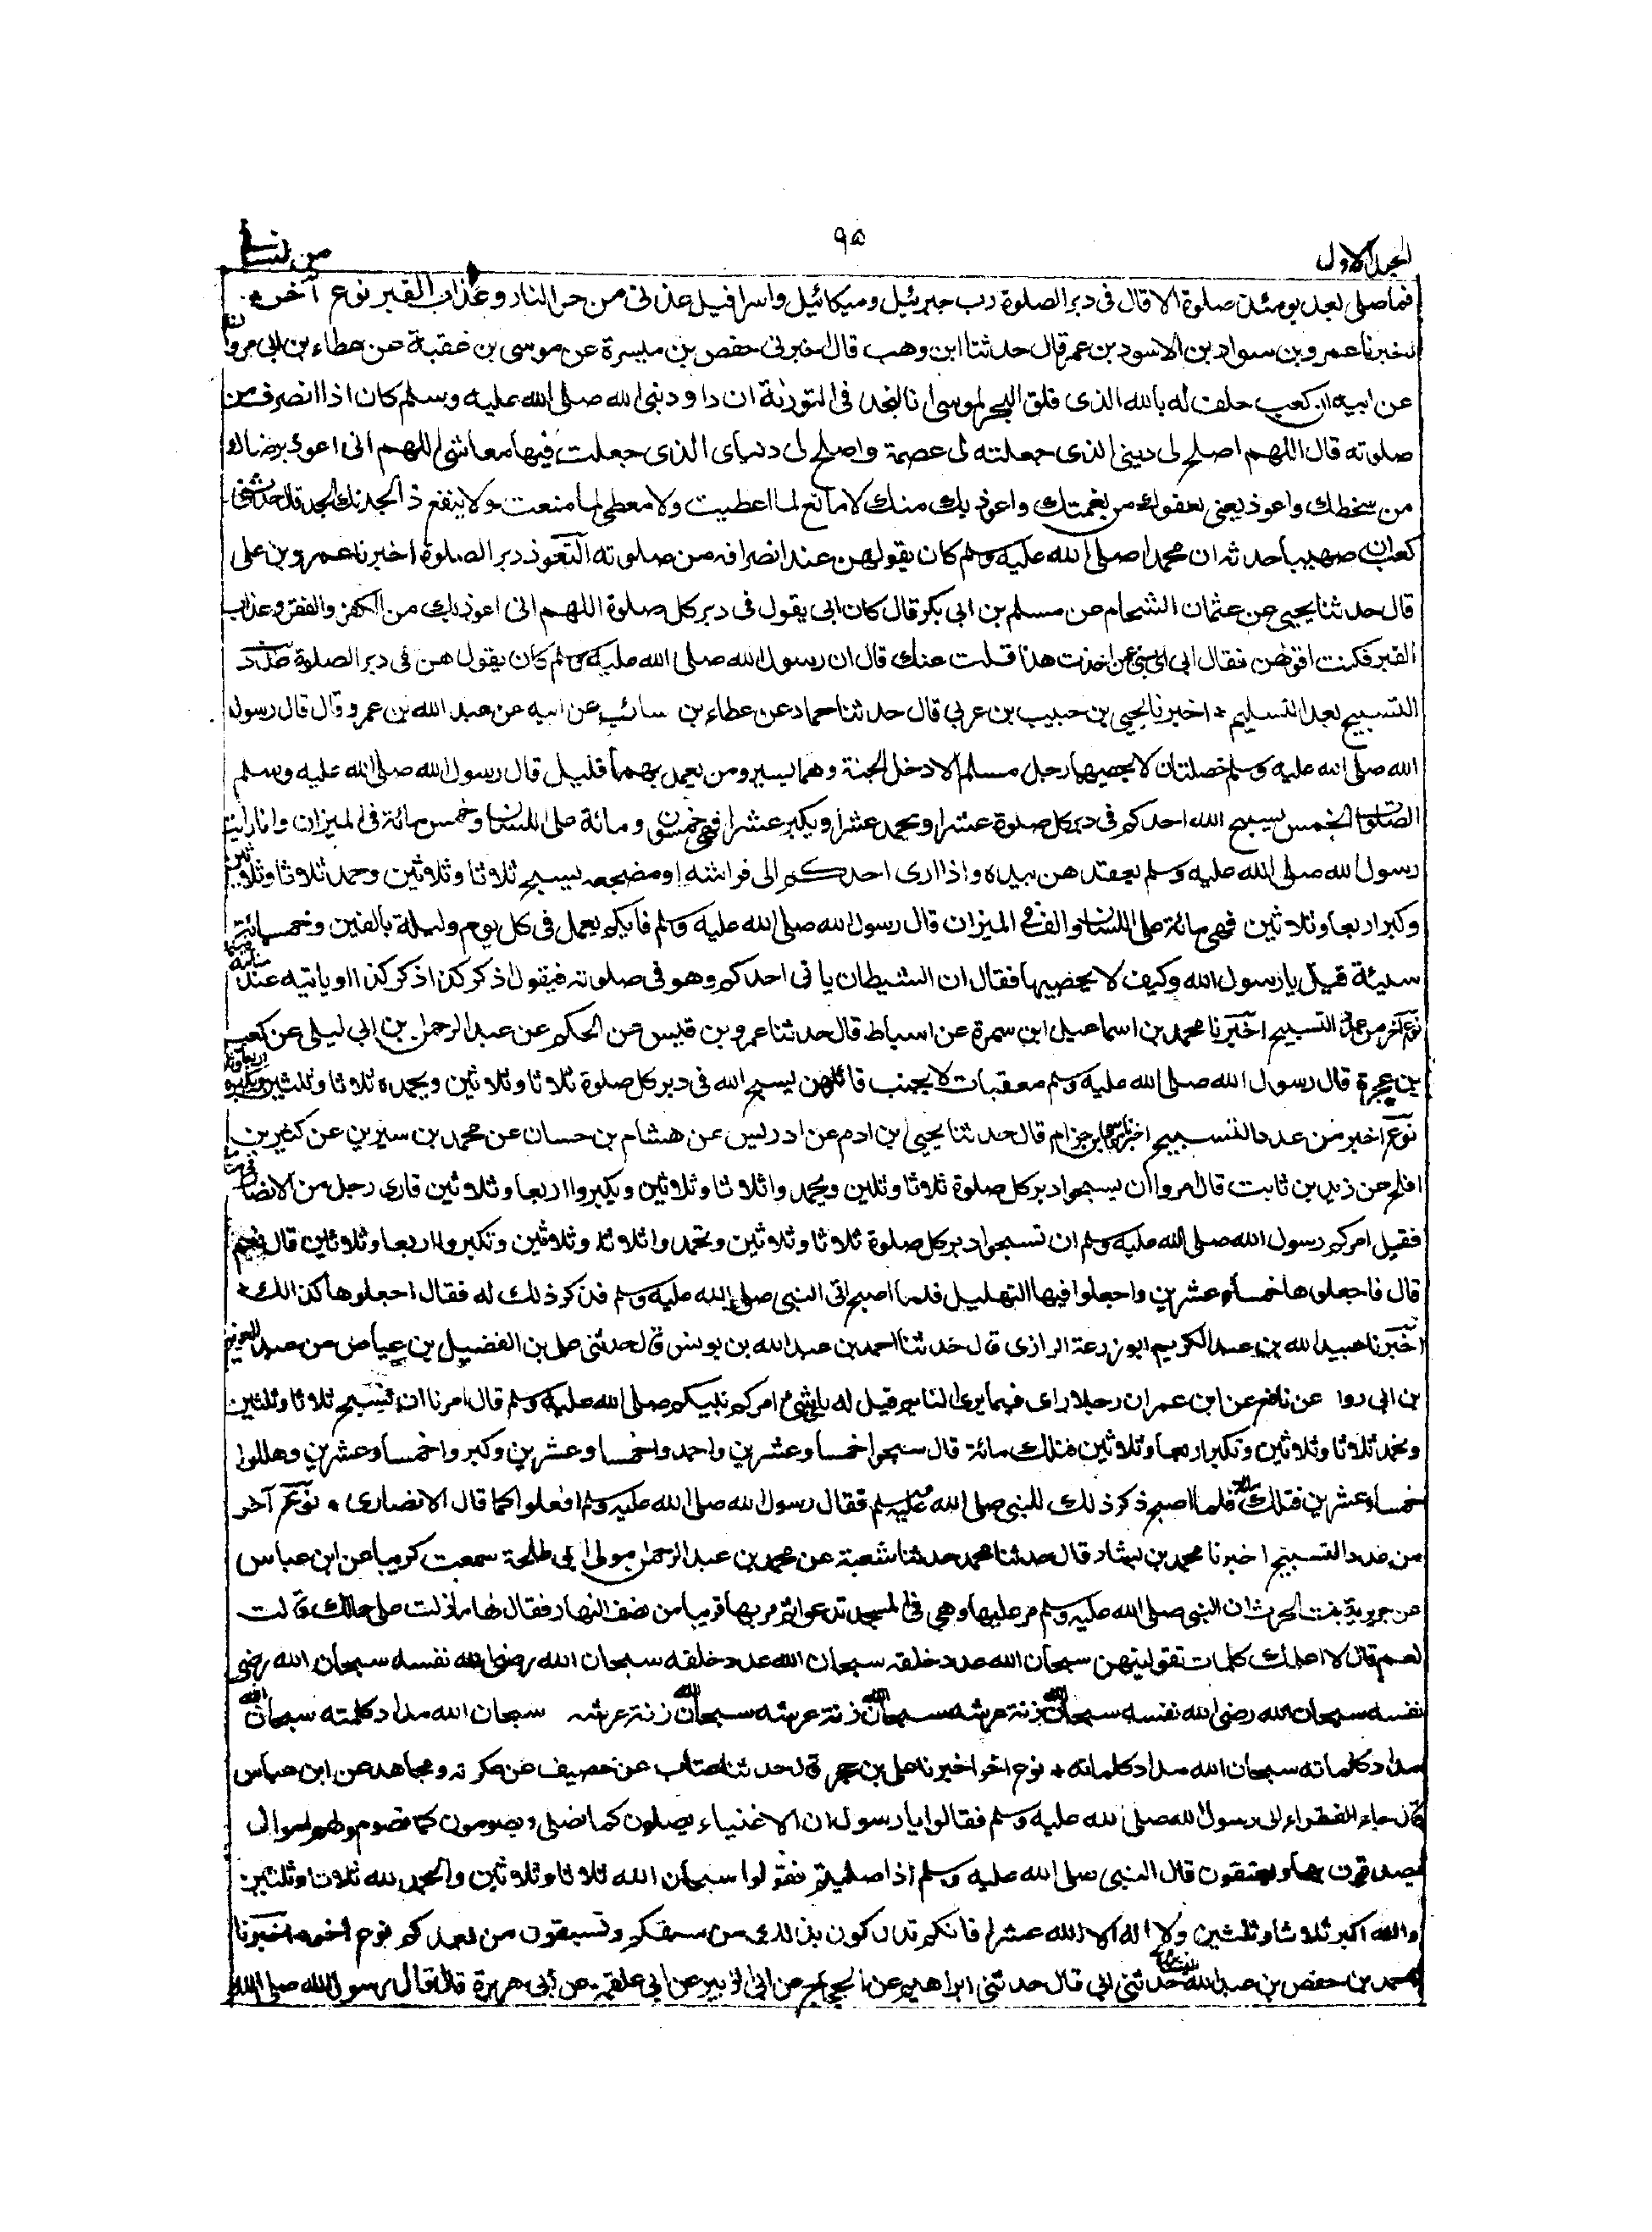 الجلد الاول
٩٥
من نسائی
فما صلى بعد يومئذ صلوة الا قال فى دبر الصلوة رب جبرئيل وميكائيل واسرافيل اعذنى من حر النار وعذاب القبر نوع آخر
اخبرنا عمرو بن سواد بن الاسود بن عمرو قال حدثنا ابن وهب قال اخبرنى حفص بن ميسرة عن موسى بن عقبة عن عطاء بن ابى مروان
عن ابيه ان كعب حلف له بالله الذى فلق البحر لموسى انا لنجد فى التورٰىة ان داود نبى الله صلى الله عليه وسلم كان اذا انصرف من
صلوته قال اللهم اصلح لى دينى الذى جعلته لى عصمة واصلح لى دنياى الذى جعلت فيها معاشى اللهم انى اعوذ برضاك
من سخطك واعوذ يعنى بعفوك من نقمتك واعوذ بك منك لا مانع لما اعطيت ولا معطى لما منعت ولا ينفع ذا الجد منك الجد قال حدثنى
كعب ان صهيبا حدثه ان محمدا صلى الله عليه وسلم كان يقولهن عند انصرافه من صلوته التعوذ دبر الصلوة اخبرنا عمرو بن على
قال حدثنا يحيى عن عثمان الشحام عن مسلم بن ابى بكر قال كان ابى يقول فى دبر كل صلوة اللهم انى اعوذ بك من الكفر والفقر وعذاب
القبر فكنت اقولهن فقال ابى اى بنى عمن اخذت هذا قلت عنك قال ان رسول الله صلى الله عليه وسلم كان يقولهن فى دبر الصلوة عدد
التسبيح بعد التسليم * اخبرنا يحيى بن حبيب بن عربى قال حدثنا حماد عن عطاء بن سائب عن ابيه عن عبد الله بن عمرو قال قال رسول
الله صلى الله عليه وسلم خصلتان لا يحصيهما رجل مسلم الا دخل الجنة وهما يسير ومن يعمل بهما قليل قال رسول الله صلى الله عليه وسلم
الصلوات الخمس يسبح الله احدكم فى دبر كل صلوة عشرا ويحمد عشرا ويكبر عشرا فهى خمسون ومائة على اللسان وخمس مائة فى الميزان وانا رايت
رسول الله صلى الله عليه وسلم يعقدهن بيده واذا ارى احدكم الى فراشه او مضجعه يسبح ثلاثا وثلاثين وحمد ثلاثا وثلاثين
وكبر اربعا وثلاثين فهى مائة على اللسان والف فى الميزان قال رسول الله صلى الله عليه وسلم فايكم يعمل فى كل يوم وليلة بالفين وخمسمائة
سيئة قيل يا رسول الله وكيف لا يحصيها فقال ان الشيطان ياتى احدكم وهو فى صلوته فيقول اذكر كذا اذكر كذا او ياتيه عند منامه فينيمه
نوع آخر من عدد التسبيح اخبرنا محمد بن اسماعيل ابن سمرة عن اسباط قال حدثنا عمرو بن قيس عن الحكم عن عبد الرحمن بن ابى ليلى عن كعب
بن عجرة قال رسول الله صلى الله عليه وسلم معقبات لا يجنب قائلهن يسبح الله فى دبر كل صلوة ثلاثا وثلاثين ويحمده ثلاثا وثلثين ويكبره اربعا وثلثين
نوع اخر من عدد التسبيح اخبرنا موسى بن حزام قال حدثنا يحيى بن ادم عن ادريس عن هشام بن حسان عن محمد بن سيرين عن كثير بن
افلح عن زيد بن ثابت قال امروا ان يسبحوا دبر كل صلوة ثلاثا وثلثين ويحمدوا ثلاثا وثلاثين ويكبروا اربعا وثلاثين فارى رجل من الانصار فى منامه
فقيل امركم رسول الله صلى الله عليه وسلم ان تسبحوا دبر كل صلوة ثلاثا وثلاثين وتحمدوا ثلاثا وثلاثين وتكبروا اربعا وثلاثين قال نعم
قال فاجعلوها خمسا وعشرين واجعلوا فيها التهليل فلما اصبح اتى النبى صلى الله عليه وسلم فذكر ذلك له فقال اجعلوها كذالك *
اخبرنا عبيد الله بن عبد الكريم ابو زرعة الرازى قال حدثنا احمد بن عبد الله بن يونس قال حدثنى على بن الفضيل بن عياض عن عبد العزيز
بن ابى روا عن نافع عن ابن عمر ان رجلا راى فيما يرى النائم قيل له باى شىء امركم نبيكم صلى الله عليه وسلم قال امرنا ان نسبح ثلاثا وثلثين
ونحمد ثلاثا وثلاثين ونكبر اربعا وثلاثين فتلك مائة قال سبحوا خمسا وعشرين واحمدوا خمسا وعشرين وكبروا خمسا وعشرين وهللوا
خمسا وعشرين فتلك مائة فلما اصبح ذكر ذلك للنبى صلى الله عليه وسلم فقال رسول الله صلى الله عليه وسلم افعلوا كما قال الانصارى * نوع آخر
من عدد التسبيح اخبرنا محمد بن بشار قال حدثنا محمد حدثنا شعبة عن محمد بن عبد الرحمن مولى ابى طلحة سمعت كريبا عن ابن عباس
عن جويرية بنت الحرث ان النبى صلى الله عليه وسلم مر عليها وهى فى المسجد تدعو اثم مر بها قريبا من نصف النهار فقال لها ما زلت على حالك قالت
نعم قال الا اعلمك كلمات تقولينهن سبحان الله عدد خلقه سبحان الله عدد خلقه سبحان الله رضى الله نفسه سبحان الله رضى
نفسه سبحان الله رضى الله نفسه سبحان الله زنة عرشه سبحان الله زنة عرشه سبحان الله زنة عرشه سبحان الله مداد كلمته سبحان الله
مداد كلماته سبحان الله مداد كلماته * نوع اخر اخبرنا على بن حجر قال حدثنا عتاب عن خصيف عن عكرمة ومجاهد عن ابن عباس
قال جاء الفقراء الى رسول الله صلى الله عليه وسلم فقالوا يا رسول ان الاغنياء يصلون كما نصلى ويصومون كما نصوم ولهم اموال
يصدقون بها ويعتقون قال النبى صلى الله عليه وسلم اذا صليتم فقولوا سبحان الله ثلاثا وثلاثين والحمد لله ثلاثا وثلثين
والله اكبر ثلاثا وثلثين ولا اله الا الله عشرا فانكم تدركون بذلك من سبقكم وتسبقون من بعدكم نوع اخر اخبرنا
احمد بن حفص بن عبد الله حدثنى ابى قال حدثنى ابراهيم عن الحجاج عن ابى الزبير عن ابى علقمة عن أبى هريرة قال قال رسول الله صلى الله